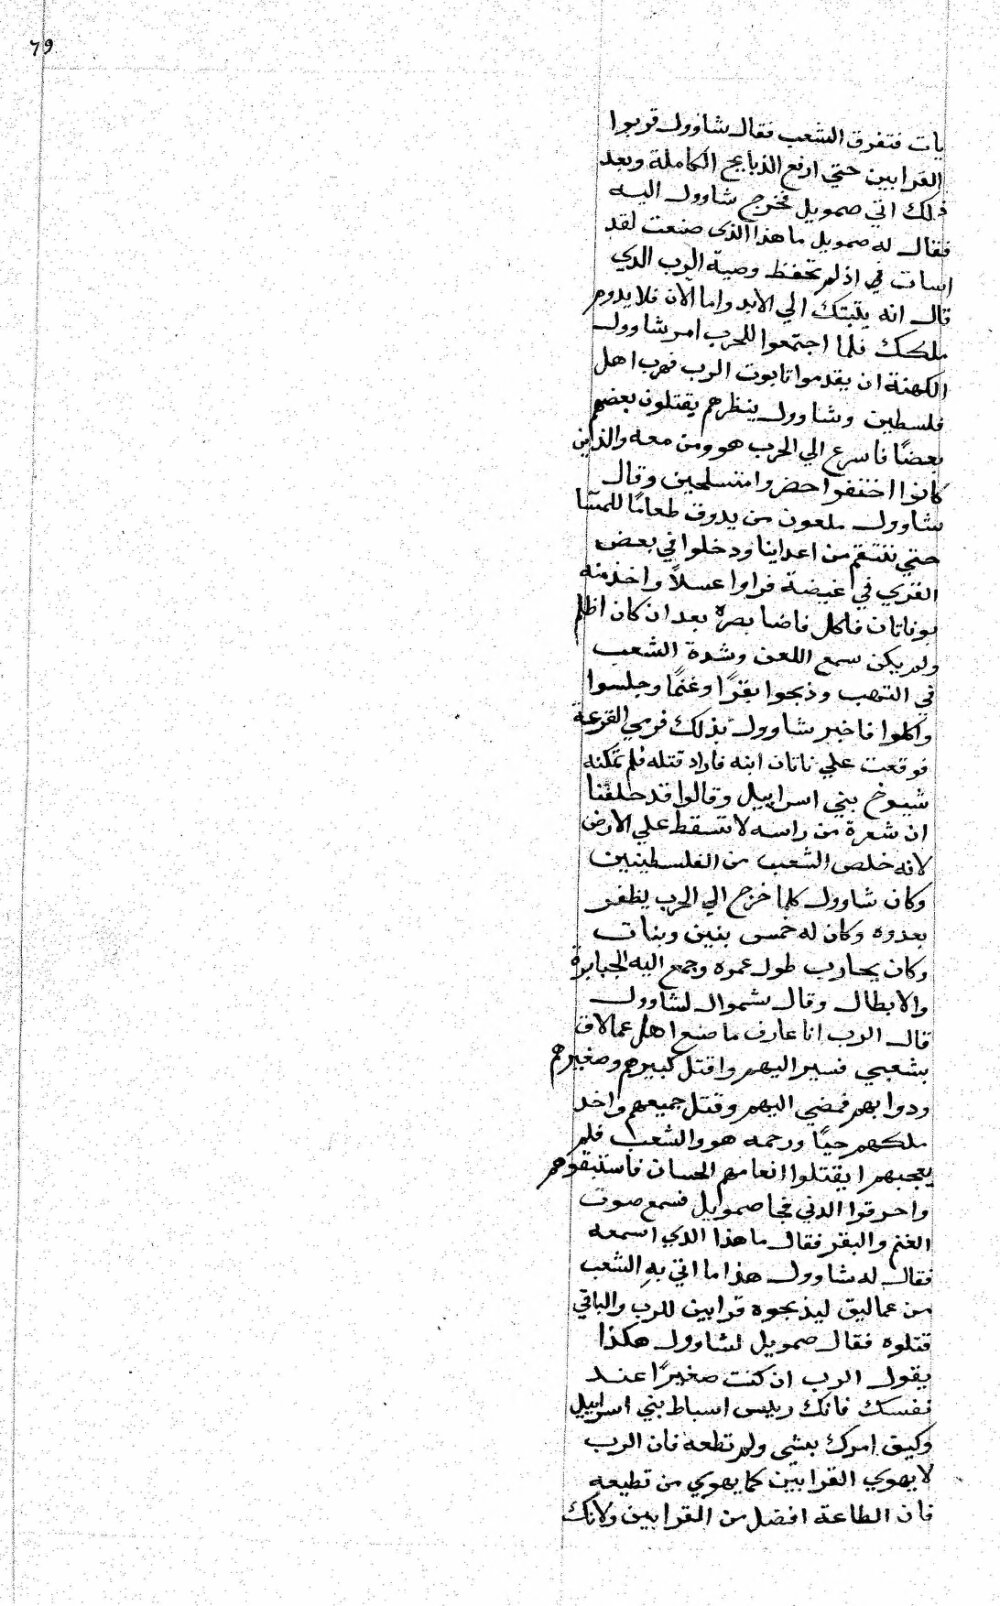 ٦٩
يات فتفرق الشعب فقال شاوول قربوا
القرابين حتي ارفع الذبايح الكاملة وبعد
ذلك اتي صمويل فخرج شاوول اليه
فقال له صمويل ما هذا الذى صنعت لقد
اسات في اذ لم تحفظ وصية الرب الدي
قال انه يثبتك الي الابد واما الآن فلا يدوم
ملكك فلما اجتمعوا للحرب امر شاوول
الكهنة ان يقدموا تابوت الرب فهرب اهل
فلسطين وشاوول ينظرهم يقتلون بعضهم
بعضًا فاسرع الي الحرب هو ومن معه والذين
كانوا اختفوا حضروا متسلحين وقال
شاوول ملعون من يدوق طعامًا للمسا
حتي ننتقم من اعداينا ودخلوا في بعض
القري في غيضة فراوا عسلاً واخذ منه
يوناتان فاكل فاضا بصره بعد ان كان اظلم
ولم يكن سمع اللعن وشدة الشعب
في النهب وذبحوا بقرًا وغنمًا وجلسوا
واكلوا فاخبر شاوول بذلك فرمي القرعة
فوقعت علي ناتان ابنه فاراد قتله فلم تمكنه
شيوخ بني اسراييل وقالوا قد حلفنا
ان شعرة من راسه لا تسقط علي الارض
لانه خلص الشعب من الفلسطينين
وكان شاوول كلما خرج الي الحرب يظفر
بعدوه وكان له خمس بنين وبنات
وكان يحارب طول عمره وجمع اليه الجبابرة
والابطال وقال شموال لشاوول
قال الرب انا عارف ما صنع اهل عمالاق
بشعبي فسير اليهم واقتل كبيرهم وصغيرهم
ودوابهم فمضي اليهم وقتل جميعهم واخد
ملكهم حيًا ورحمه هو والشعب فلم
يعجبهم ايقتلوا انعامهم الحسان فاستبقوهم
واحرقوا الدني فجا صمويل فسمع صوت
الغنم والبقر فقال ما هذا الدي اسمعه
فقال له شاوول هذا ما اتي به الشعب
من عماليق ليذبحوه قرابين للرب والباقي
قتلوه فقال صمويل لشاوول هكذا
يقول الرب ان كنت صغيرًا عند
نفسك فانك رييس اسباط بني اسراييل
وكيف امرك بشي ولم تطعه فان الرب
لا يهوي القرابين كما يهوي من تطيعه
فان الطاعة افضل من القرابين ولانك